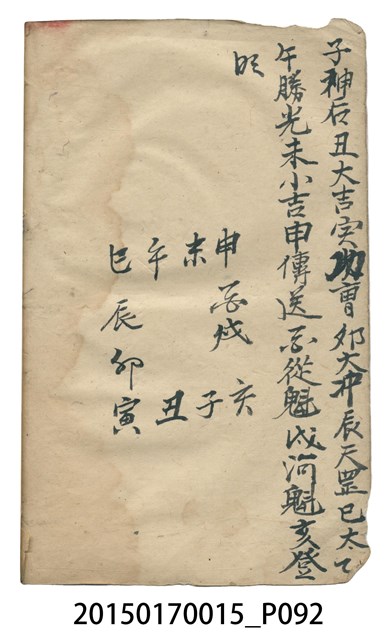 子神后丑大吉寅功曹卯大冲辰天罡巳太乙
午勝光未小吉申傳送酉從魁戌河魁亥登
明
申未午巳
酉戌辰卯
亥子丑寅
20150170015_P092